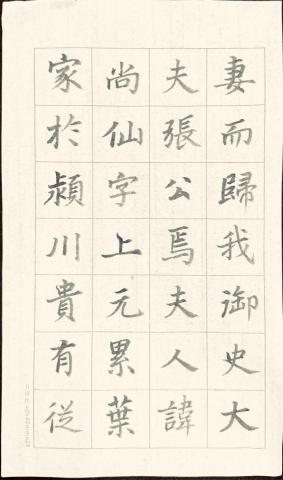 妻而歸我御史大
夫張公焉夫人諱
尚仙字上元累葉
家於潁川貴有從